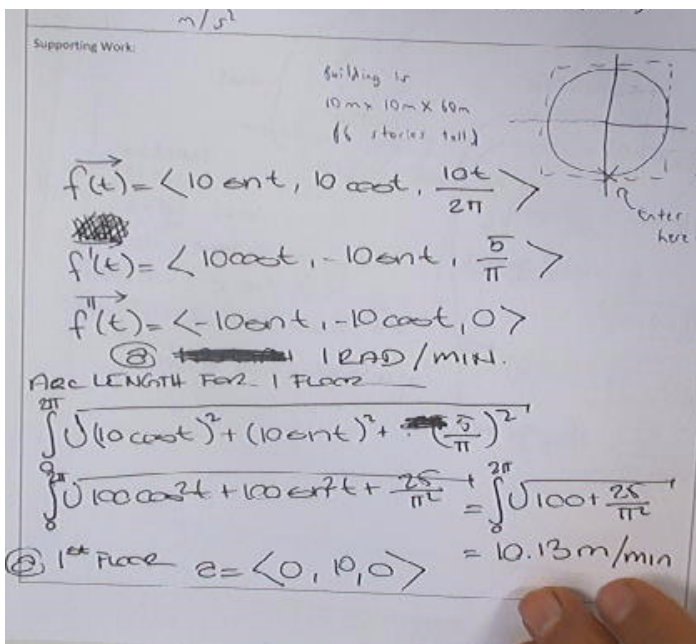 m/s²
Supporting Work:
Building is
10m x 10m x 60m
(6 stories tall)
Enter
here
f(t) = <10 sint, 10 cost, 10t/2π>
f'(t) = <10cost, -10sint, 5/π>
f''(t) = <-10sint, -10cost, 0>
@ 1 RAD/MIN.
ARC LENGTH FOR 1 FLOOR
∫₀^2π √(10cost)² + (10sint)² + (5/π)²
∫₀^2π √100cos²t + 100sin²t + 25/π² = ∫₀^2π √100 + 25/π²
= 10.13m/min
@ 1st FLOOR a = <0, 10, 0>